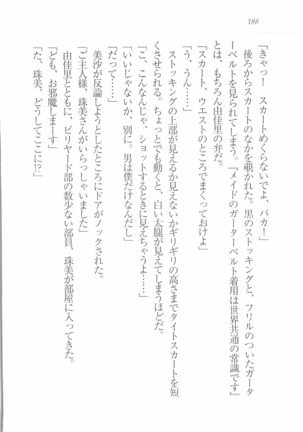 188
「きゃっ！　スカートめくらないでよ、バカ！」
後ろからスカートのなかを覗かれた。黒のストッキングと、フリルのついたガータ
ーベルトを見られてしまう。『メイドのガーターベルト着用は世界共通の常識です』
とは、もちろん由佳里の弁だ。
「スカート、ウエストのところでまくっておけよ」
「う、うん……」
ストッキングの上部が見えるか見えないかギリギリの高さまでタイトスカートを短
くさせられる。ちょっとでも動くと、白い太腿が見えてしまうほどだ。
「こ、こんなんじゃ、ショットするときに見えちゃうよ……」
「いいじゃないか、別に。男は僕だけなんだし」
「だって……」
美沙が反論しようとしたところにドアがノックされた。
「ご主人様、珠美さんがいらっしゃいました」
由佳里とともに、ビリヤード部の数少ない部員、珠美が部屋に入ってきた。
「ども、お邪魔しまーす」
「た、珠美、どうしてここに!?」